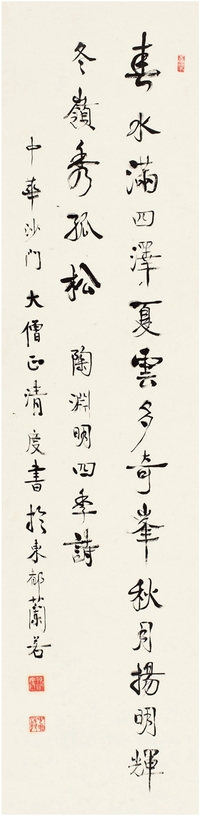 春水滿四澤夏雲多奇峯秋月揚明輝
冬嶺秀孤松 陶淵明四季詩
中華沙门大僧正清度書於東都蘭若